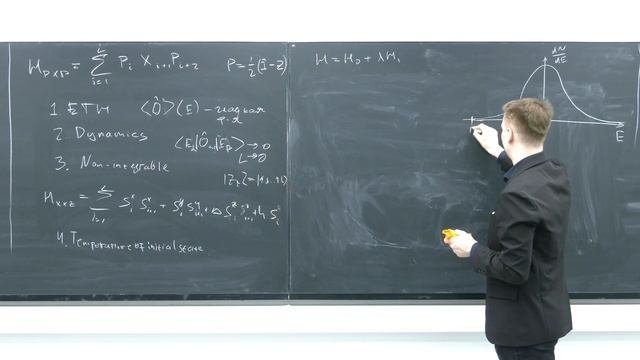 H_PXP = Σ_{i=1}^{L} P_i X_{i+1} P_{i+2} P = 1/2 (I - Z)
1 ETH ⟨Ô⟩(E) – гладкая
ф-я
2 Dynamics
3. Non-integrable
|Z_2⟩ =
H_XXZ = Σ_{i=1}^{L} S_i^x S_{i+1}^x + S_i^y S_{i+1}^y + Δ S_i^z S_{i+1}^z + h S_i^z
4. Temperature of initial state
H = H_0 + λH_1
dN
dE
E